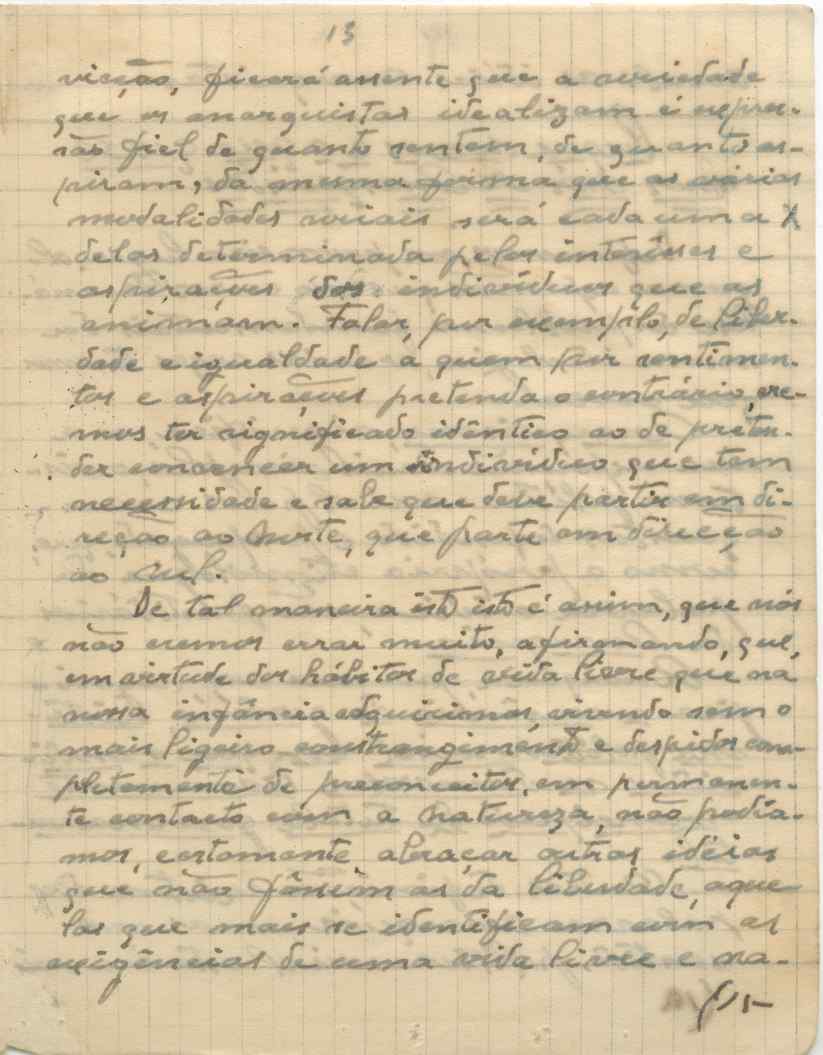 13
vicção, ficará assente que a sociedade
que os anarquistas idealizam é expres-
são fiel de quanto sentem, de quanto as-
piram, da mesma forma que as várias
modalidades sociais será cada uma
delas determinada pelos interêsses e
aspirações dos indivíduos que as
animam. Falar, por exemplo, de liber-
dade e igualdade a quem por sentimen-
tos e aspirações pretenda o contrário, cre-
mos ter significado idêntico ao de preten-
der convencer um indivíduo que tem
necessidade e sabe que deve partir em di-
reção ao Norte, que parta em direcção
ao Sul.
De tal maneira isto isto é assim, que nós
não cremos errar muito, afirmando, que,
em virtude dos hábitos de vida livre que na
nossa infância adquirimos, vivendo sem o
mais ligeiro constrangimento e despidos com-
pletamente de preconceitos, em permanen-
te contacto com a Natureza, não podía-
mos, certamente, abraçar outras idéias
que não fôssem as da liberdade, aque
las que mais se identificam com as
exigências de uma vida livre e na-